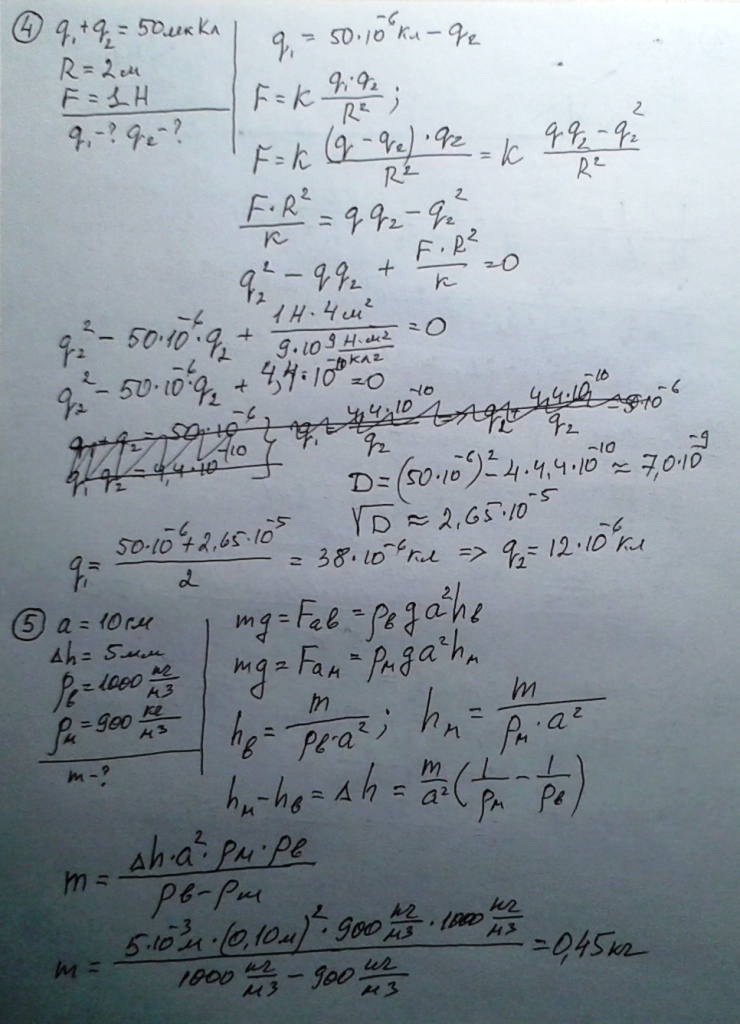 ④ q₁ + q₂ = 50 мкКл
R = 2 м
F = 1 Н
q₁ - ? q₂ - ?
q₁ = 50·10⁻⁶ кл - q₂
F = K q₁·q₂ / R² ;
F = K (q - q₂)·q₂ / R² = K (q q₂ - q₂²) / R²
F·R² / K = q q₂ - q₂²
q₂² - q q₂ + F·R² / K = 0
q₂² - 50·10⁻⁶·q₂ + 1 Н·4 м² / 9·10⁹ Н·м²/кл² = 0
q₂² - 50·10⁻⁶ q₂ + 4,4·10⁻¹⁰ = 0
q₁ + q₂ = 50·10⁻⁶
q₁ q₂ = 4,4·10⁻¹⁰
q₁ = 4,4·10⁻¹⁰ / q₂
D = (50·10⁻⁶)² - 4·4,4·10⁻¹⁰ ≈ 7,0·10⁻⁹
√D ≈ 2,65·10⁻⁵
q₁ = (50·10⁻⁶ + 2,65·10⁻⁵) / 2 = 38·10⁻⁶ кл => q₂ = 12·10⁻⁶ кл
⑤ a = 10 см
Δh = 5 мм
ρв = 1000 кг/м3
ρм = 900 кг/м3
m - ?
mg = Fав = ρв g a² hв
mg = Fам = ρм g a² hм
hв = m / ρв·a² ; hм = m / ρм·a²
hм - hв = Δh = m/a² (1/ρм - 1/ρв)
m = Δh·a²·ρм·ρв / ρв - ρм
m = 5·10⁻³ м·(0,10 м)²·900 кг/м3·1000 кг/м3 / 1000 кг/м3 - 900 кг/м3 = 0,45 кг